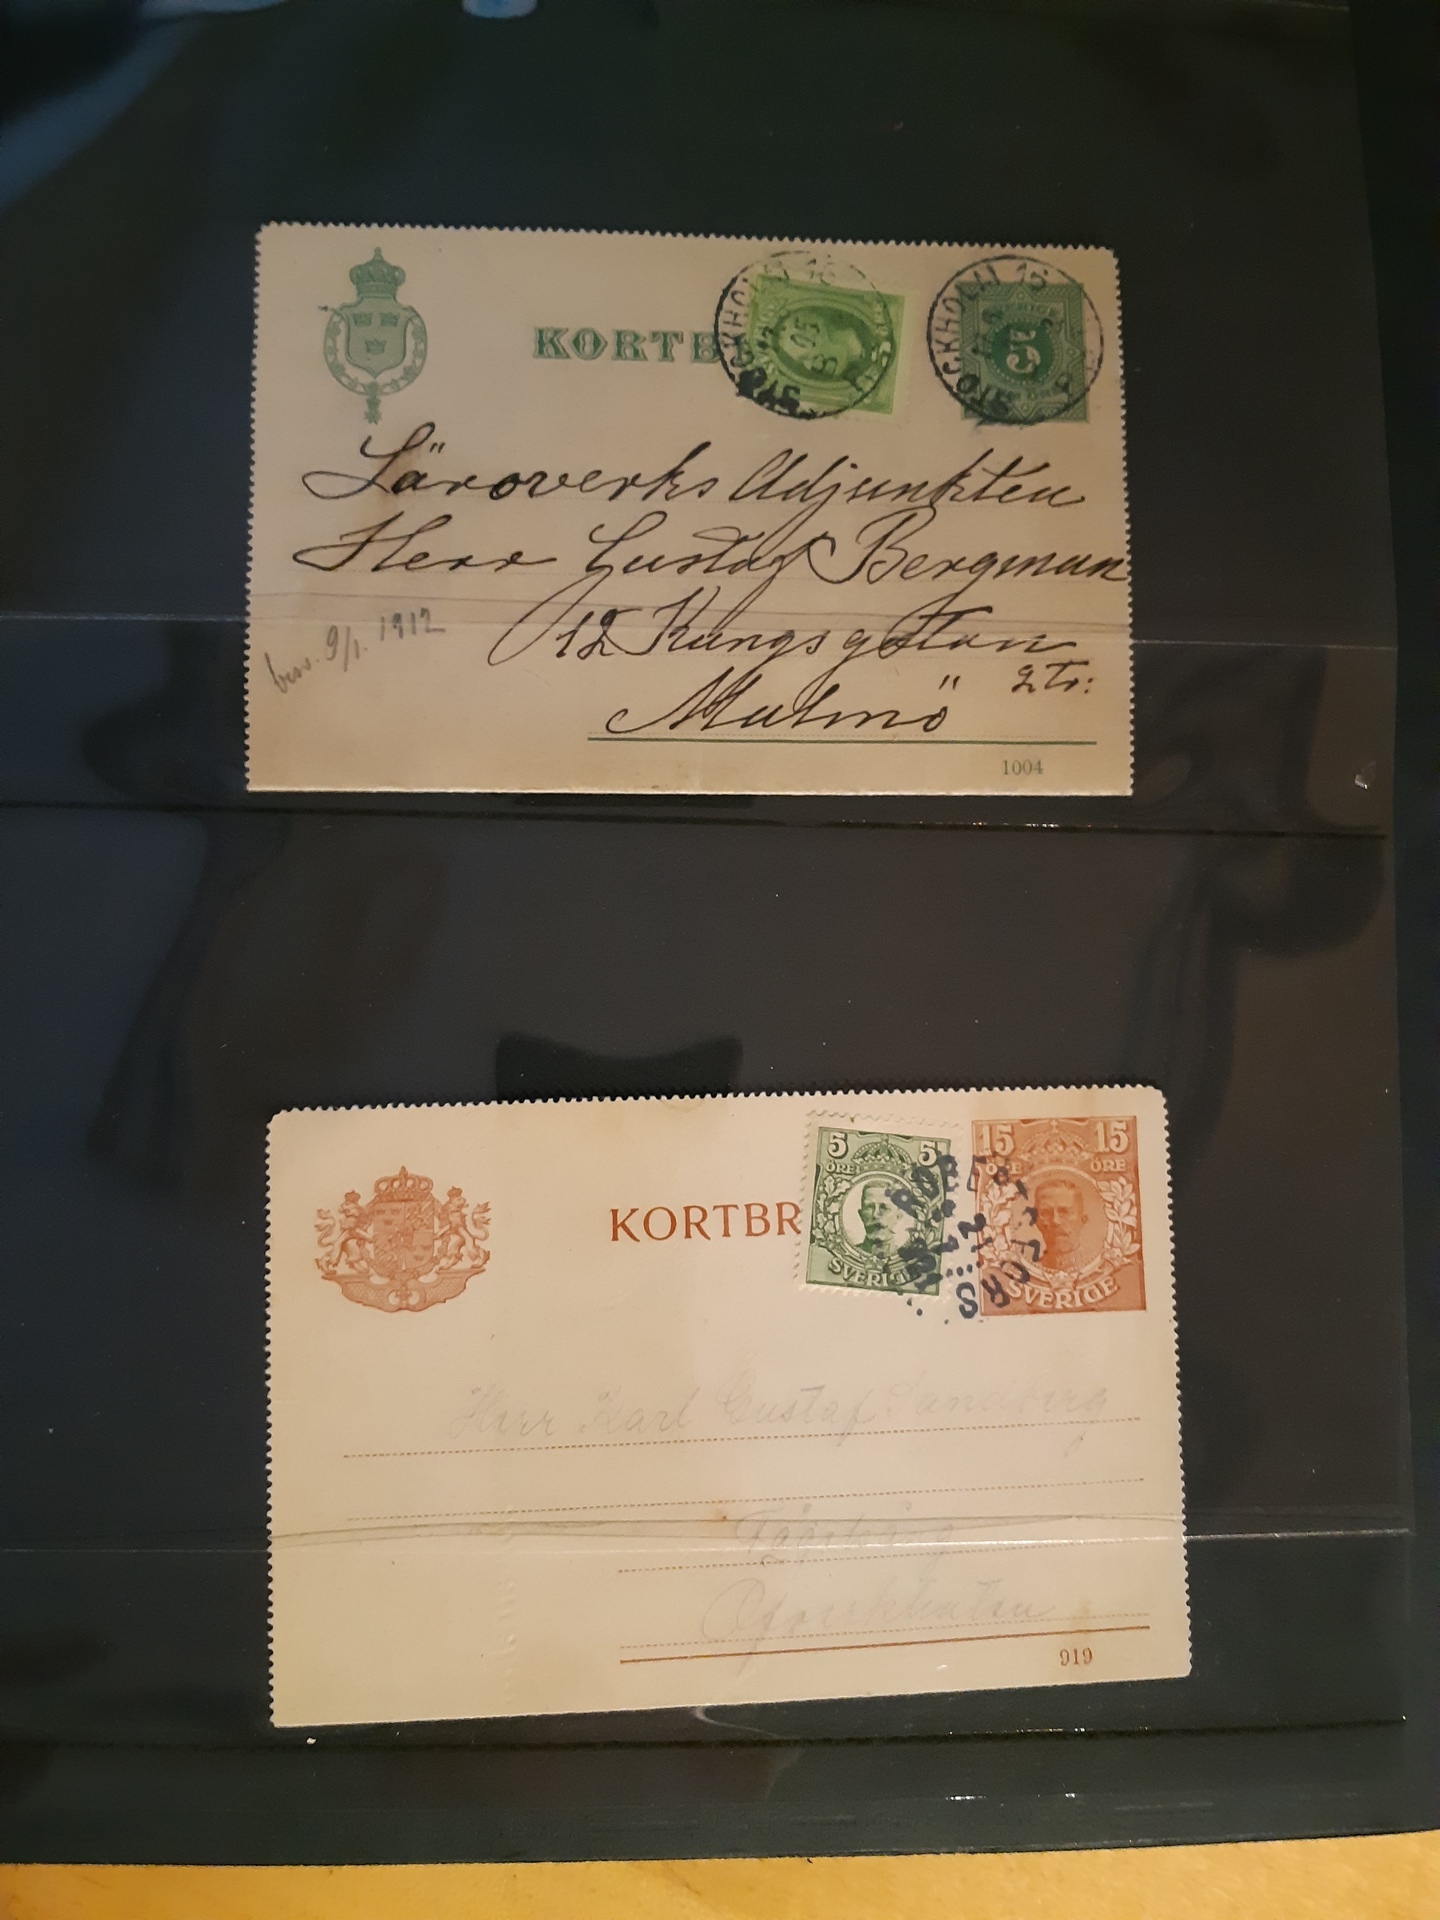 KORTB
STOCKHOLM 16
STOCKHOLM 16
5
Läroverks Adjunkten
Herr Gustaf Bergman
12 Kungsgatan
2 tr:
Malmö
besv. 9/1. 1912
1004
KORTBR
5 5
ÖRE ÖRE
SVERIGE
15 15
ÖRE ÖRE
SVERIGE
Herr Karl Gustaf Sandberg
919